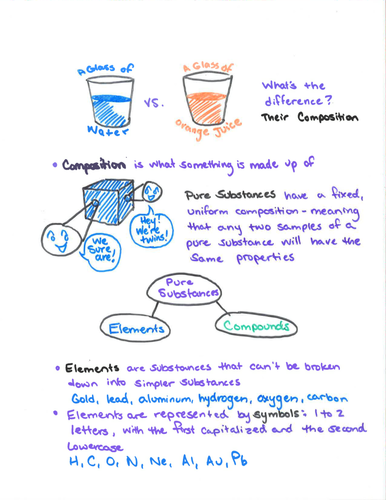 A Glass of
Water
vs.
A Glass of
Orange Juice
What's the
difference?
Their Composition
• Composition is what something is made up of
Hey!
We're
twins!
We
Sure
are!
Pure Substances have a fixed,
uniform composition - meaning
that any two samples of a
pure substance will have the
same properties
Pure
Substances
Elements
Compounds
• Elements are substances that can't be broken
down into simpler substances
Gold, lead, aluminum, hydrogen, oxygen, carbon
• Elements are represented by symbols: 1 to 2
letters, with the first capitalized and the second
lowercase
H, C, O, N, Ne, Al, Au, Pb